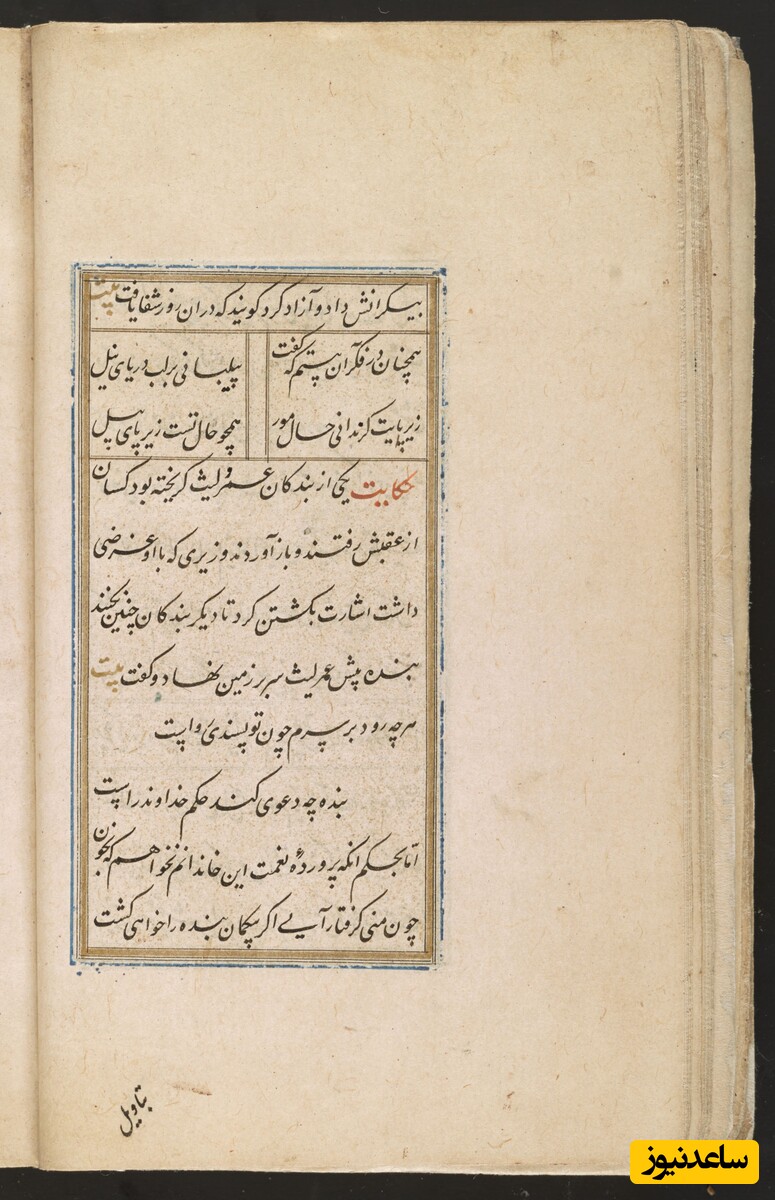 بیکرانش داد و آزاد کرد گویند که دران روز شفا یافت بیت
همچنان در فکر آن بیتم که گفت پیلبانی بر لب دریای نیل
زیر پایت گر ندانی حال مور همچو حال تست زیر پای پیل
حکایت یکی از بندگان عمرو لیث گریخته بود کسان
از عقبش رفتند و باز آوردند وزیری که با او غرضی
داشت اشارت بکشتن کرد تا دیگر بندگان چنین نکنند
بنده پیش عمر لیث سر بر زمین نهاد و گفت بیت
هر چه رود بر سرم چون تو پسندی رواست
بنده چه دعوی کند حکم خداوند راست
اما بحکم آنکه پرورده نعمت این خاندانم نخواهم که بخون
چون منی گرفتار آیی اگر بیگمان بنده را خواهی کشت
بتاویل
ساعدنیوز